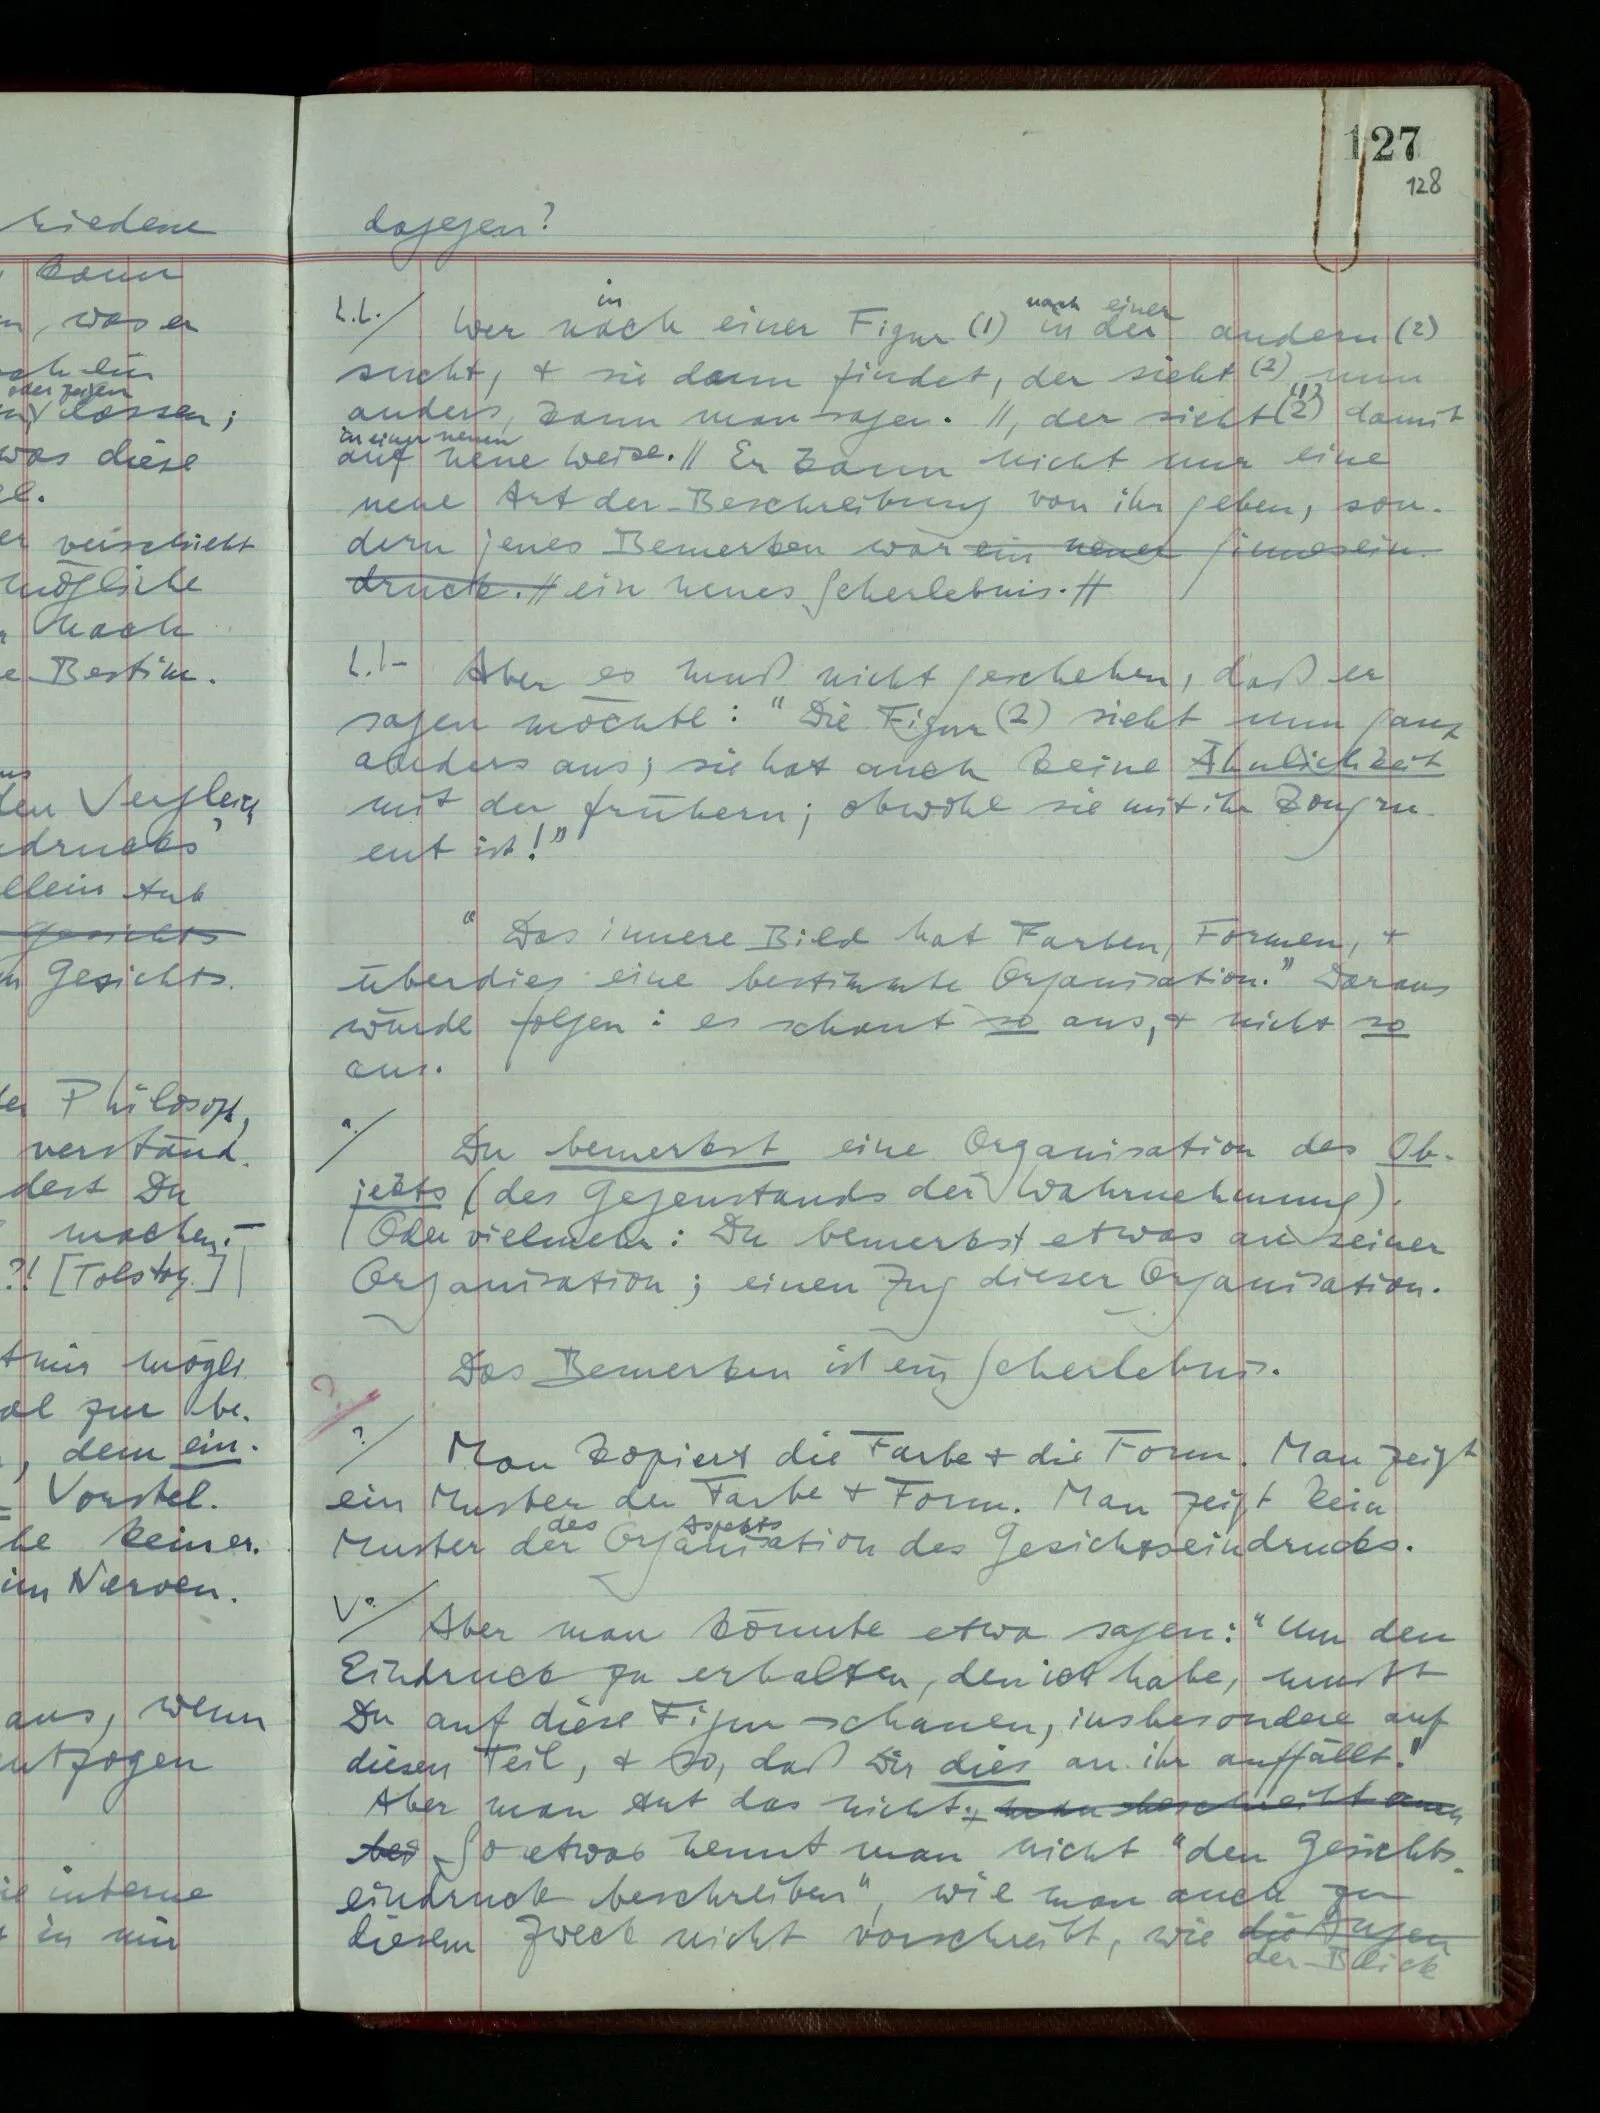 127
128
riedene
kann
was er
oder zeigen
lassen;
was diese
verschiebt
mögliche
nach
Bestim-
den Vergleich
drucks"
allein tut
Gesichts
Gesichts.
Philosoph,
verständ-
dest Du
machen. –
?! [Tolstoy.]
mir mögli
zur be-
, dem ein-
Vorstel-
keiner-
im Nerven.
aus, wenn
interne
in mir
dagegen?
in nach einer
Wer nach einer Figur (1) in der andern (2)
sucht, & sie dann findet, der sieht (2) nun
(1)
anders, kann man sagen. //, der sieht (2) damit
in einer neuen
auf neue Weise.// Er kann nicht nur eine
neue Art der Beschreibung von ihr geben, son-
dern jenes Bemerken war ein neuer Sinnesein-
druck. // ein neues Seherlebnis. //
Aber es muß nicht geschehen, daß er
sagen möchte: "Die Figur (2) sieht nun ganz
anders aus; sie hat auch keine Ähnlichkeit
mit der frühern; obwohl sie mit ihr kongru-
ent ist!"
"Das innere Bild hat Farben, Formen, &
überdies eine bestimmte Organisation." Daraus
würde folgen: es schaut so aus, & nicht so
aus.
Du bemerkst eine Organisation des Ob-
jekts (des Gegenstands der Wahrnehmung).
Oder vielmehr: Du bemerkst etwas an seiner
Organisation; einen Zug dieser Organisation.
Das Bemerken ist ein Seherlebnis.
?
?/ Man kopiert die Farbe & die Form. Man zeigt
ein Muster der Farbe & Form. Man zeigt kein
des Aspekts
Muster der Organisation des Gesichtseindrucks.
Aber man könnte etwa sagen: "Um den
Eindruck zu erhalten, den ich habe, mußt
Du auf diese Figur schauen, insbesondere auf
diesen Teil, & so, daß Dir dies an ihr auffällt."
Aber man tut das nicht; man beschreibt auch
bei So etwas nennt man nicht "den Gesichts-
eindruck beschreiben", wie man auch zu
diesem Zweck nicht vorschreibt, wie die Augen
der Blick